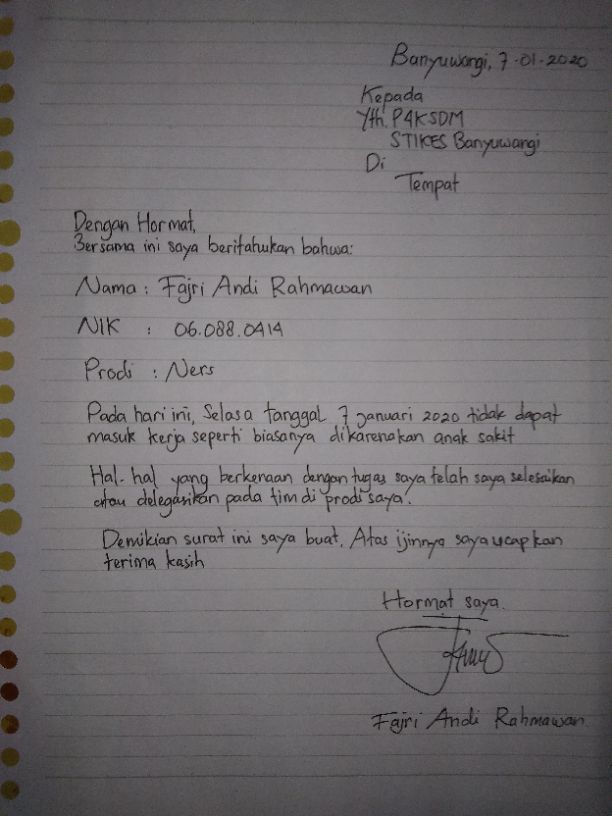 Banyuwangi, 7-01-2020
Kepada
Yth. P4KSDM
STIKES Banyuwangi
Di
Tempat
Dengan Hormat,
Bersama ini saya beritahukan bahwa:
Nama : Fajri Andi Rahmawan
NIK : 06.088.0414
Prodi : Ners
Pada hari ini, Selasa tanggal 7 Januari 2020 tidak dapat
masuk kerja seperti biasanya dikarenakan anak sakit
Hal-hal yang berkenaan dengan tugas saya telah saya selesaikan
atau delegasikan pada tim di prodi saya.
Demikian surat ini saya buat. Atas ijinnya saya ucapkan
terima kasih
Hormat saya.
Fajri Andi Rahmawan